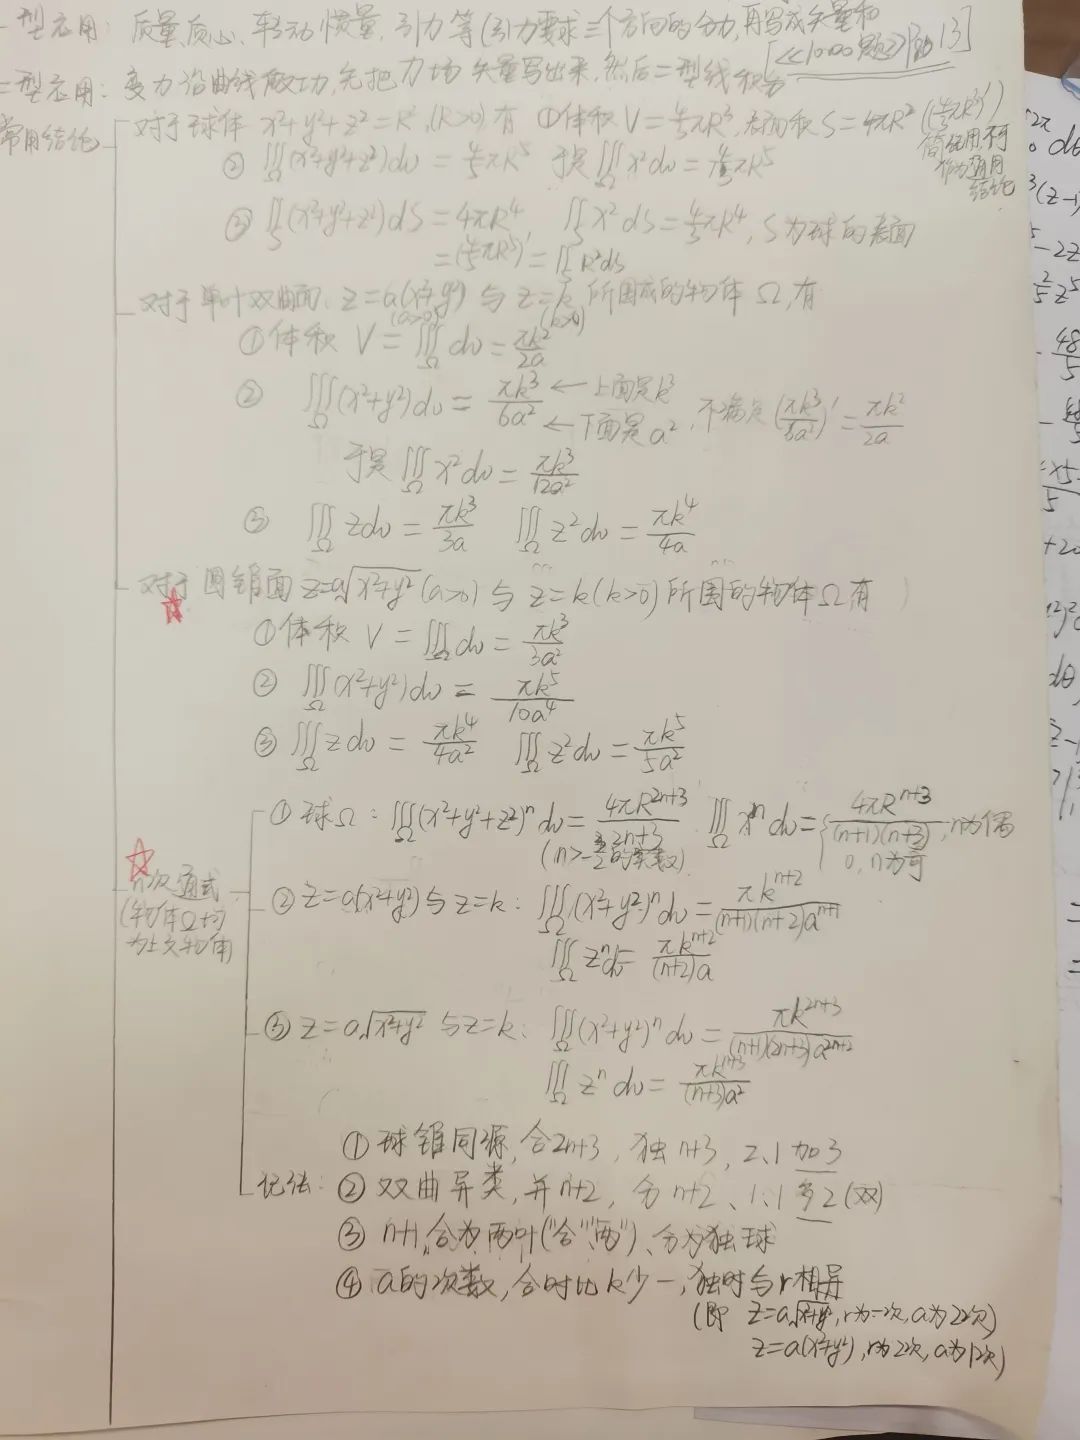 一型应用: 质量,质心,转动惯量,引力等(引力要求三个方向的分力,再写成矢量和
[《1000题》P 13]
二型应用: 变力沿曲线做功,先把力场矢量写出来,然后二型线积分
常用结论 对于球体 x²+y²+z²=R²,(R>0)有 ①体积 V=4/3πR³,表面积 S=4πR² (4/3πR³)'
简便用,不可作为通用结论
② ∭(x²+y²+z²)dv = 4/5πR⁵ 于是 ∭x²dv = 4/15πR⁵
③ ∬(x²+y²+z²)dS = 4πR⁴, ∬x²dS = 4/3πR⁴, S为球的表面
=(4/5πR⁵)' = ∬R²dS
对于单叶双曲面, z=a(x²+y²) 与 z=k 所围成的物体Ω,有
(a>0) (k>0)
①体积 V=∭_Ω dv = πk²/2a
② ∭_Ω(x²+y²)dv = πk³/6a² ←上面是k³ ←下面是a², 不满足(πk³/6a²)' = πk²/2a
于是 ∭_Ω x²dv = πk³/12a²
③ ∭_Ω zdv = πk³/3a ∭_Ω z²dv = πk⁴/4a
对于圆锥面 z=a√(x²+y²) (a>0) 与 z=k(k>0)所围的物体Ω有
①体积 V=∭_Ω dv = πk³/3a²
② ∭_Ω(x²+y²)dv = πk⁵/10a⁴
③ ∭_Ω zdv = πk⁴/4a² ∭_Ω z²dv = πk⁵/5a²
n次通式 (物体Ω均为上文物体)
① 球Ω: ∭_Ω(x²+y²+z²)ⁿdv = 4πR²ⁿ⁺³/2n+3 ∭_Ω xⁿdv = { 4πRⁿ⁺³/(n+1)(n+3), n为偶
0, n为奇
② z=a(x²+y²)与z=k: ∭_Ω(x²+y²)ⁿdv = πkⁿ⁺²/(n+1)(n+2)aⁿ⁺¹
∭_Ω zⁿdv = πkⁿ⁺²/(n+2)a
③ z=a√(x²+y²) 与z=k: ∭_Ω(x²+y²)ⁿdv = πk²ⁿ⁺³/(n+1)(2n+3)a²ⁿ⁺²
∭_Ω zⁿdv = πkⁿ⁺³/(n+3)a²
记法: ① 球锥同源,合2n+3,独n+3, 2、1加3
② 双曲异类,并n+2,分n+2、1:1多2(双)
③ n+1,合为两叶("合""两")、分为独球
④ a的次数,合时比k少一,独时与r相异
(即 z=a√(x²+y²), r为一次,a为2次)
z=a(x²+y²), r为2次,a为1次)